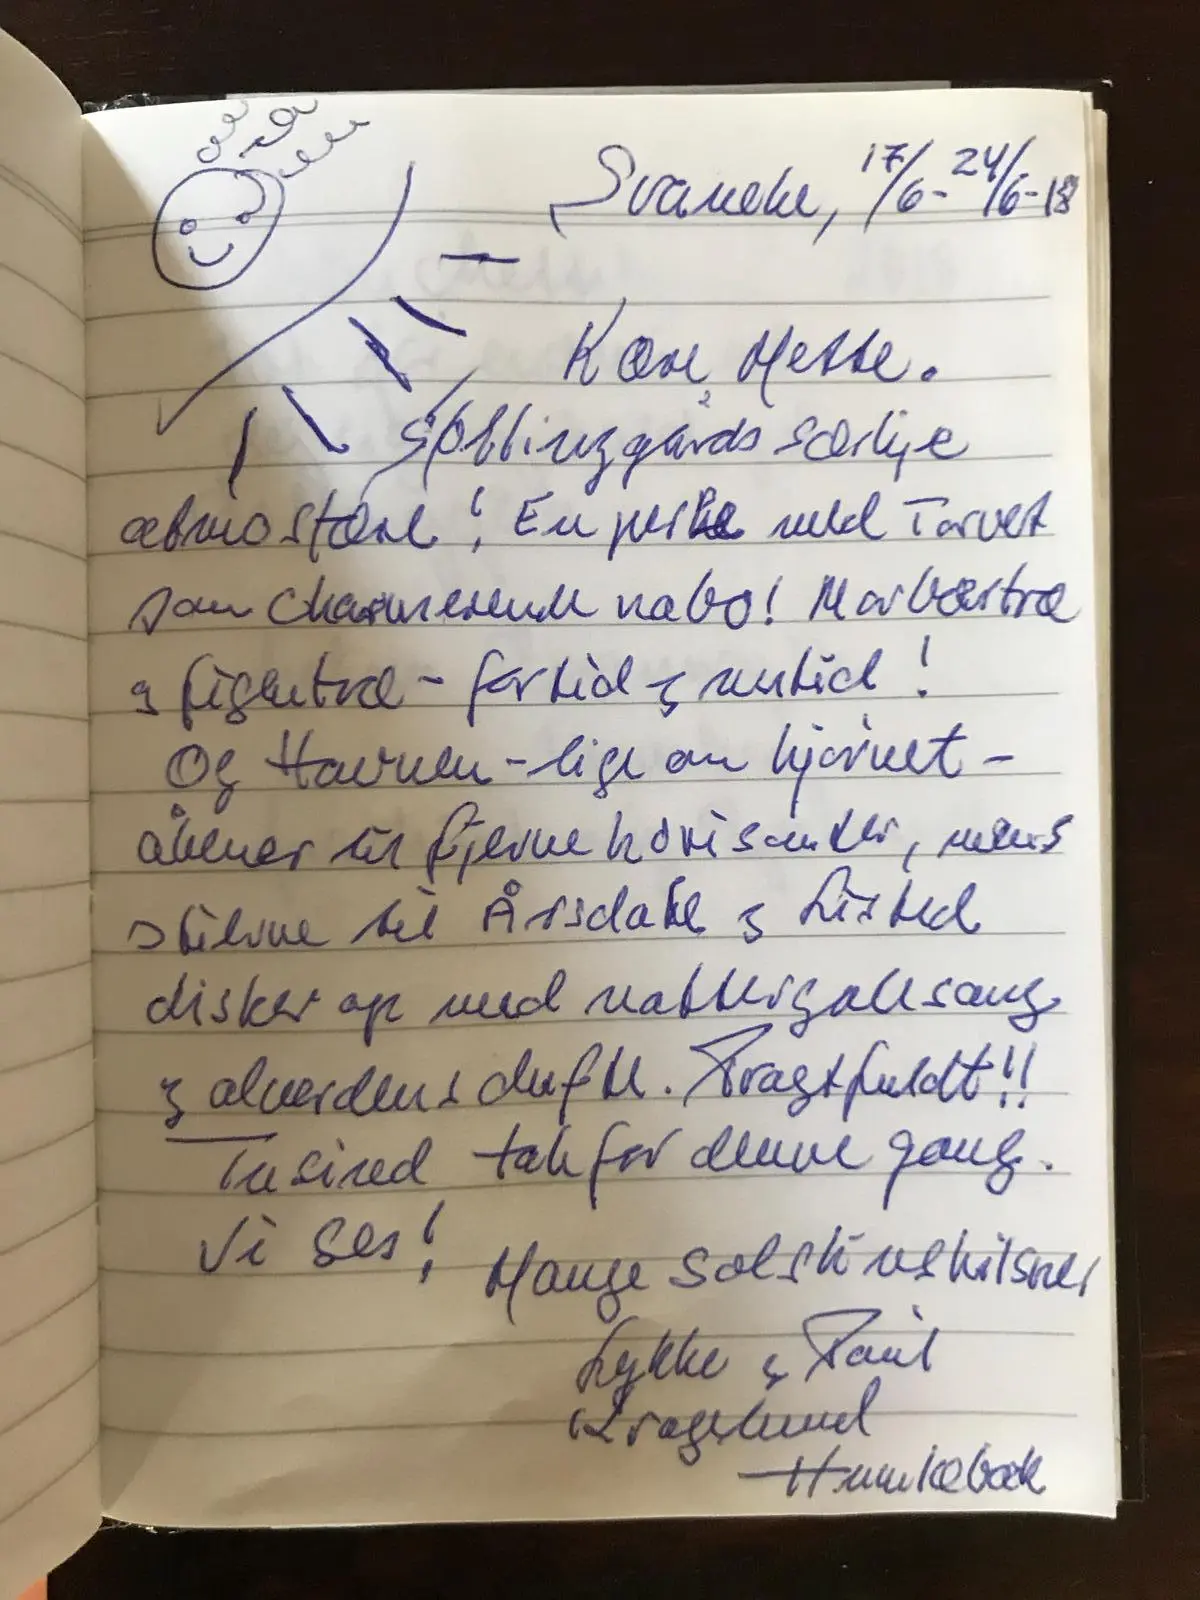 Svaneke, 17/6-24/6-18
Kære Mette.
særlige
atmosfære! En perle med Torvet
som charmerende nabo! Morbærtræ
og figentræ - fortid og nutid!
Og Havnen - lige om hjørnet -
åbner til fjerne horisonter, mens
stierne til Årsdale og Listed
disker op med nattergalesang
og alverdens dufte. Pragtfuldt!!
Tusind tak for denne gang.
Vi ses!
Mange solskinshilsner
Lykke og Paul
Humlebæk